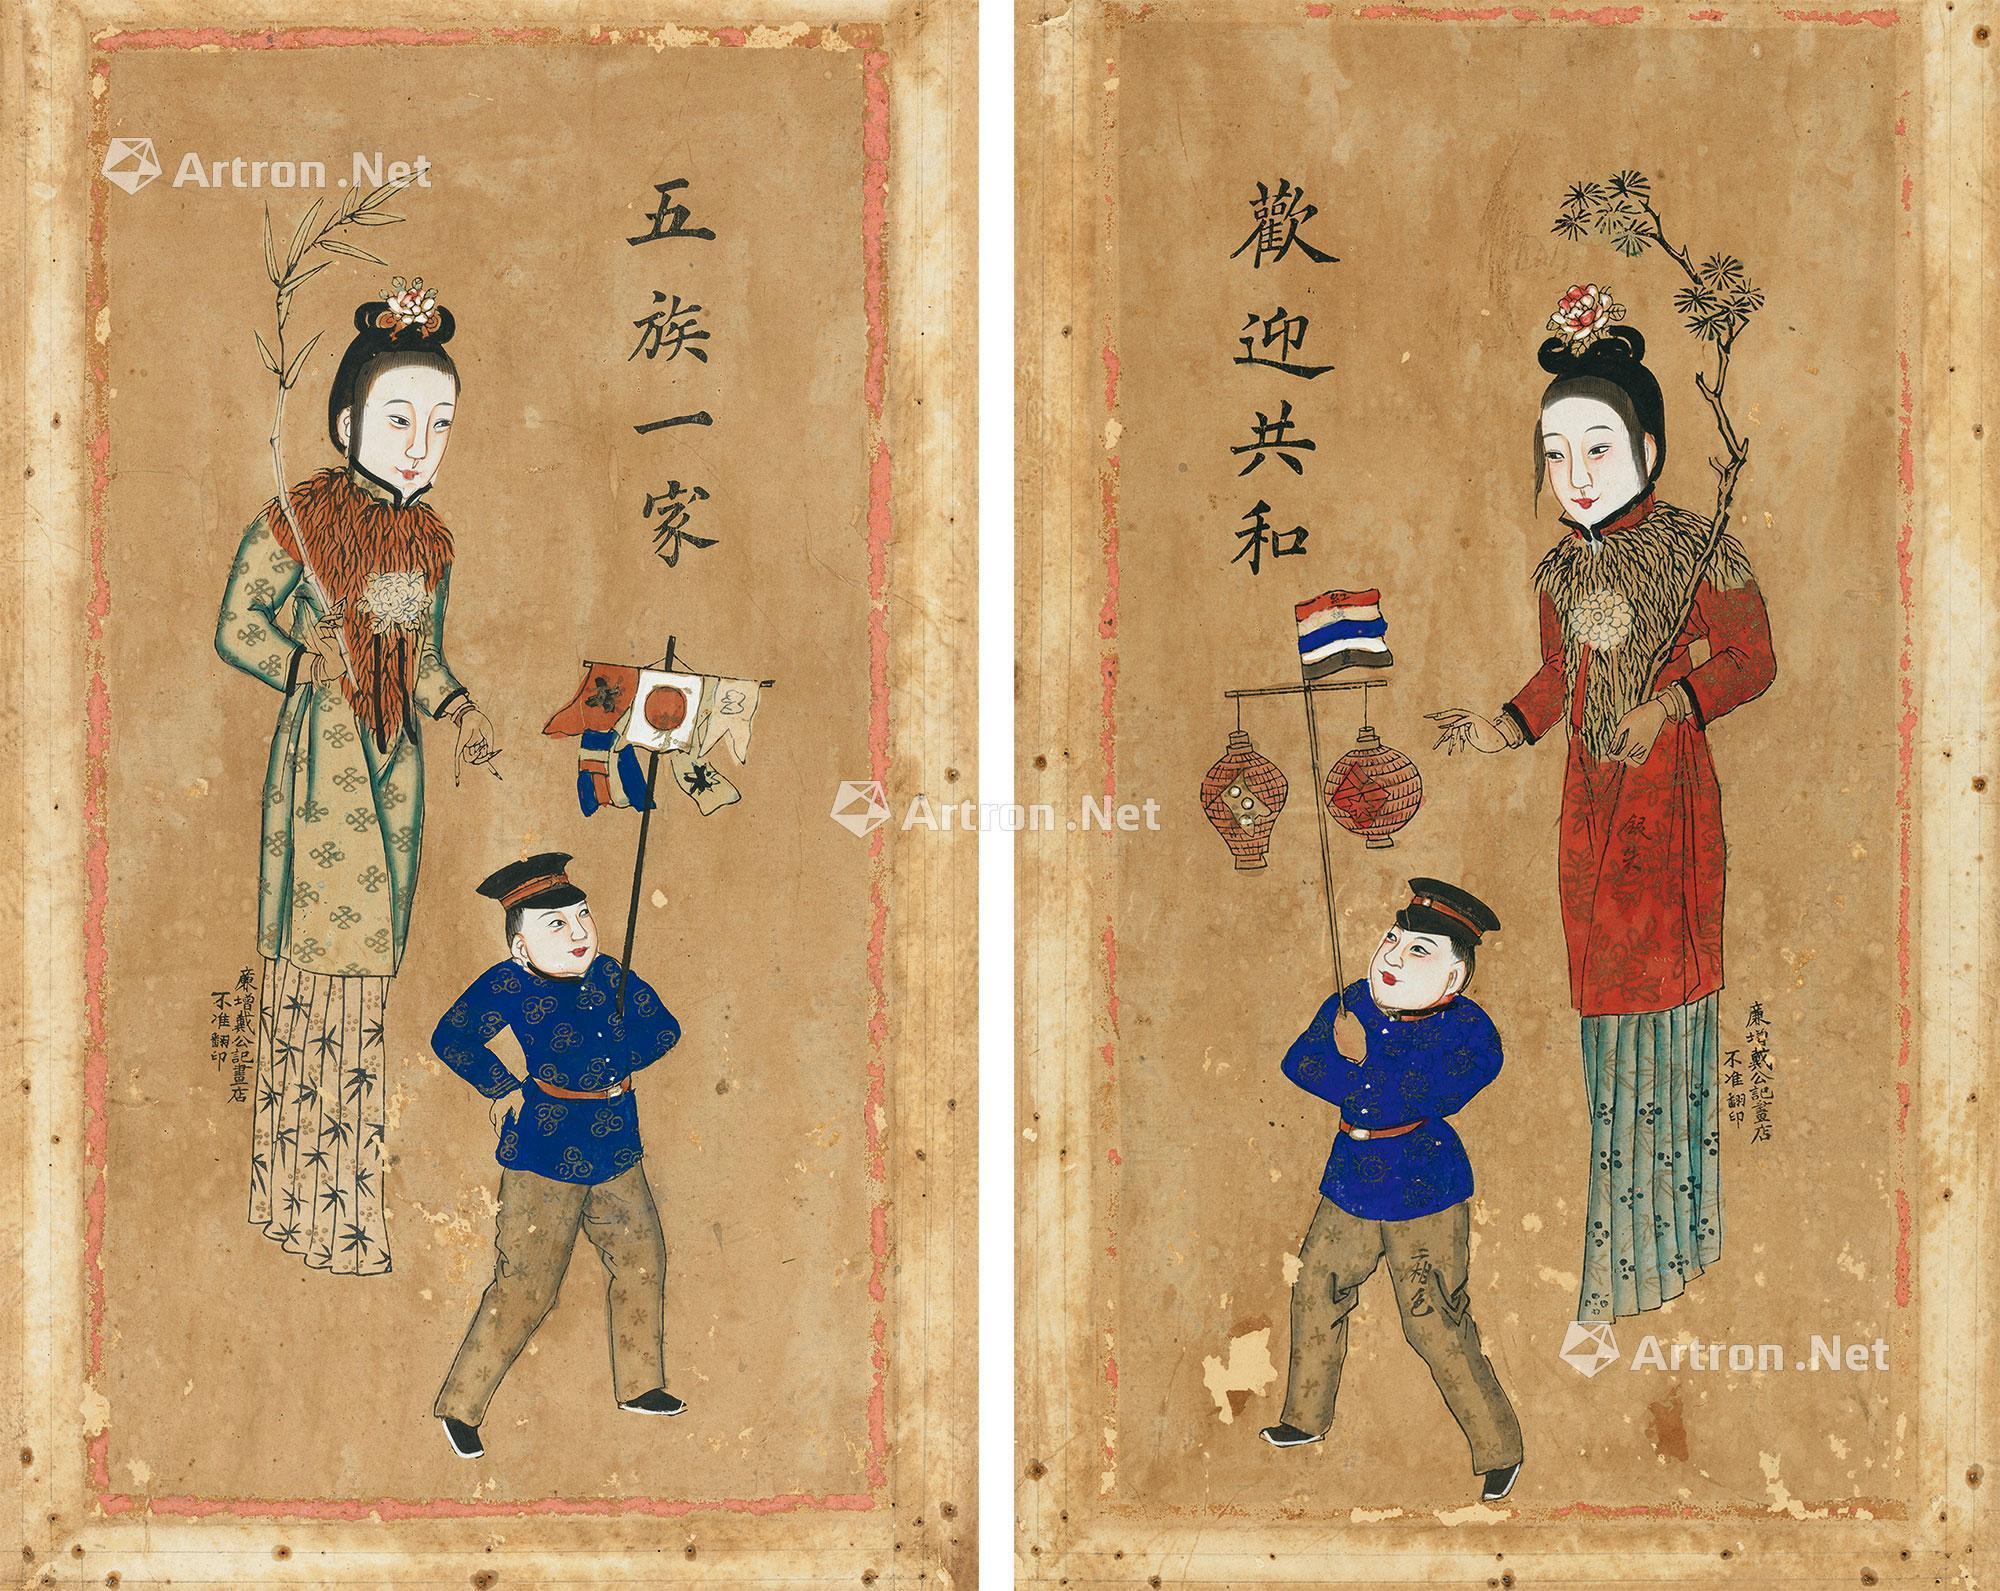 Artron.Net
五族一家
廉增戴公記畫店
不准翻印
歡迎共和
紅
銀朱
二相色
廉增戴公記畫店
不准翻印
Artron.Net
Artron.Net